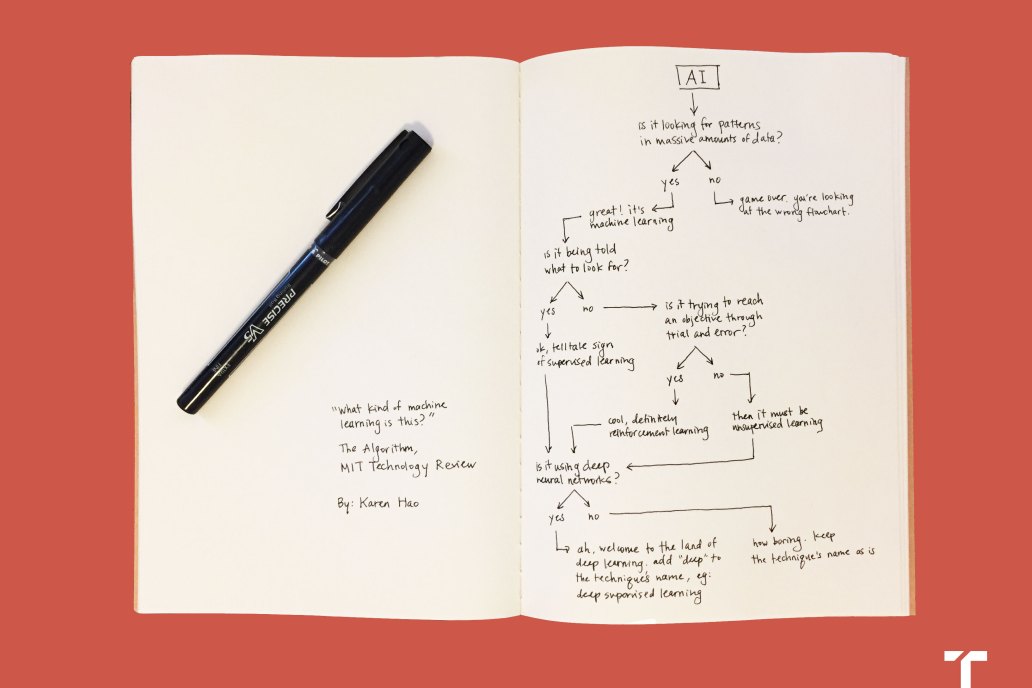 PILOT
PRECISE V5
Rolling Ball
"What kind of machine
learning is this?"
The Algorithm,
MIT Technology Review
By: Karen Hao
AI
is it looking for patterns
in massive amounts of data?
yes
no
great! it's
machine learning
game over. you're looking
at the wrong flowchart.
is it being told
what to look for?
yes
no
is it trying to reach
an objective through
trial and error?
ok, telltale sign
of supervised learning
yes
no
cool, definitely
reinforcement learning
then it must be
unsupervised learning
is it using deep
neural networks?
yes
no
ah, welcome to the land of
deep learning. add "deep" to
the technique's name, eg:
deep supervised learning
how boring. keep
the technique's name as is
T